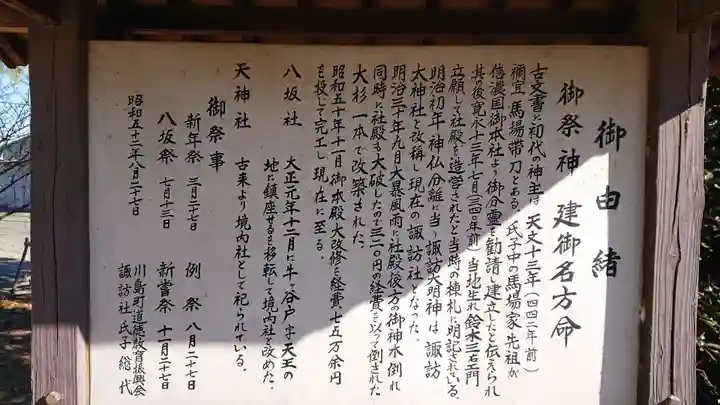 御由緒
御祭神 建御名方命
古文書に初代の神主は天文十三年(四四二年前)
禰宜 馬場帯刀とある。氏子中の馬場家先祖が
信濃国御本社より御分霊を勧請し建立したと伝えられ
其の後寛永十三年七月(三四〇年前)当地生れ鈴木三右ヱ門
立願して社殿を造営されたと当時の棟札に明記されている。
明治初年神仏分離に当り諏訪大明神は、諏訪
太神社と改称し現在の諏訪社となった。
明治三十年九月大暴風雨に社殿後方の御神木倒れ
同時に社殿も大破したので三二〇円の経費を以って倒された
大杉一本で改築された。
昭和五十年十一月御本殿大改修を経費七五万余円
を投じて完工し現在に至る。
八坂社 大正元年十二月に牛ヶ谷戸字天王の
地に鎮座せるを移転して境内社と改めた。
天神社 古来より境内社として祀られている。
御祭事
新年祭 三月二十七日 例祭 八月二十七日
八坂祭 七月十三日 新嘗祭 十一月二十七日
昭和五十二年八月二十七日 川島町道徳教育振興会
諏訪社氏子総代